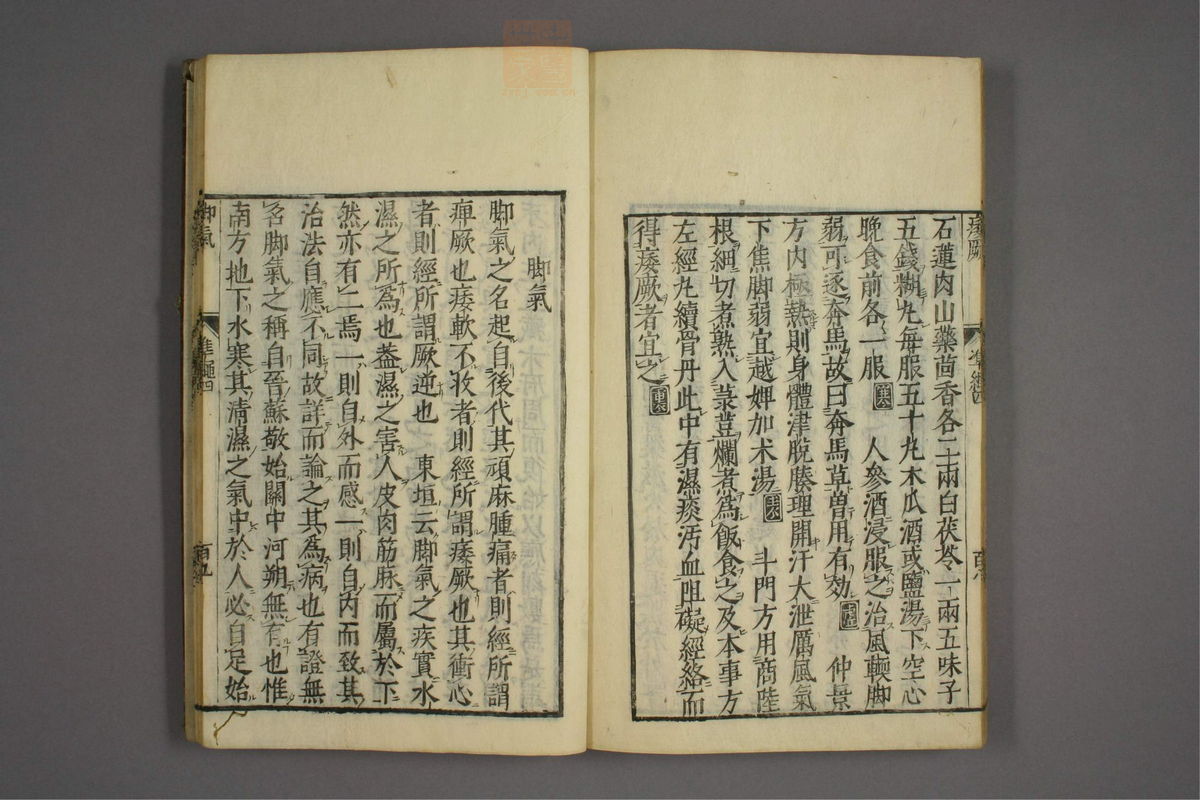 痿厥
準繩四
百八
石蓮肉山藥茴香各二兩白茯苓一兩五味子
五錢糊丸每服五十丸木瓜酒或鹽湯下空心
晚食前各一服 人參酒浸服之治風輭脚
弱可逐奔馬故曰奔馬草曽用有効 仲景
方内極熱則身體津脫腠理開汗大泄厲風氣
下焦脚弱宜越婢加术湯 斗門方用商陸
根細切煮熟入菉荳爛煮為飯食之及本事方
左經丸續骨丹此中有濕痰汚血阻礙經絡而
得痿厥者宜之
脚氣
脚氣之名起自後代其頑麻腫痛者則經所謂
痺厥也痿軟不收者則經所謂痿厥也其衝心
者則經所謂厥逆也 東垣云脚氣之疾實水
濕之所為也葢濕之害人皮肉筋脉而屬於下
然亦有二焉一則自外而感一則自内而致其
治法自應不同故詳而論之其為病也有證無
名脚氣之稱自晉蘇敬始關中河朔無有也惟
南方地下水寒其清濕之氣中於人必自足始
脚氣
準繩四
百九